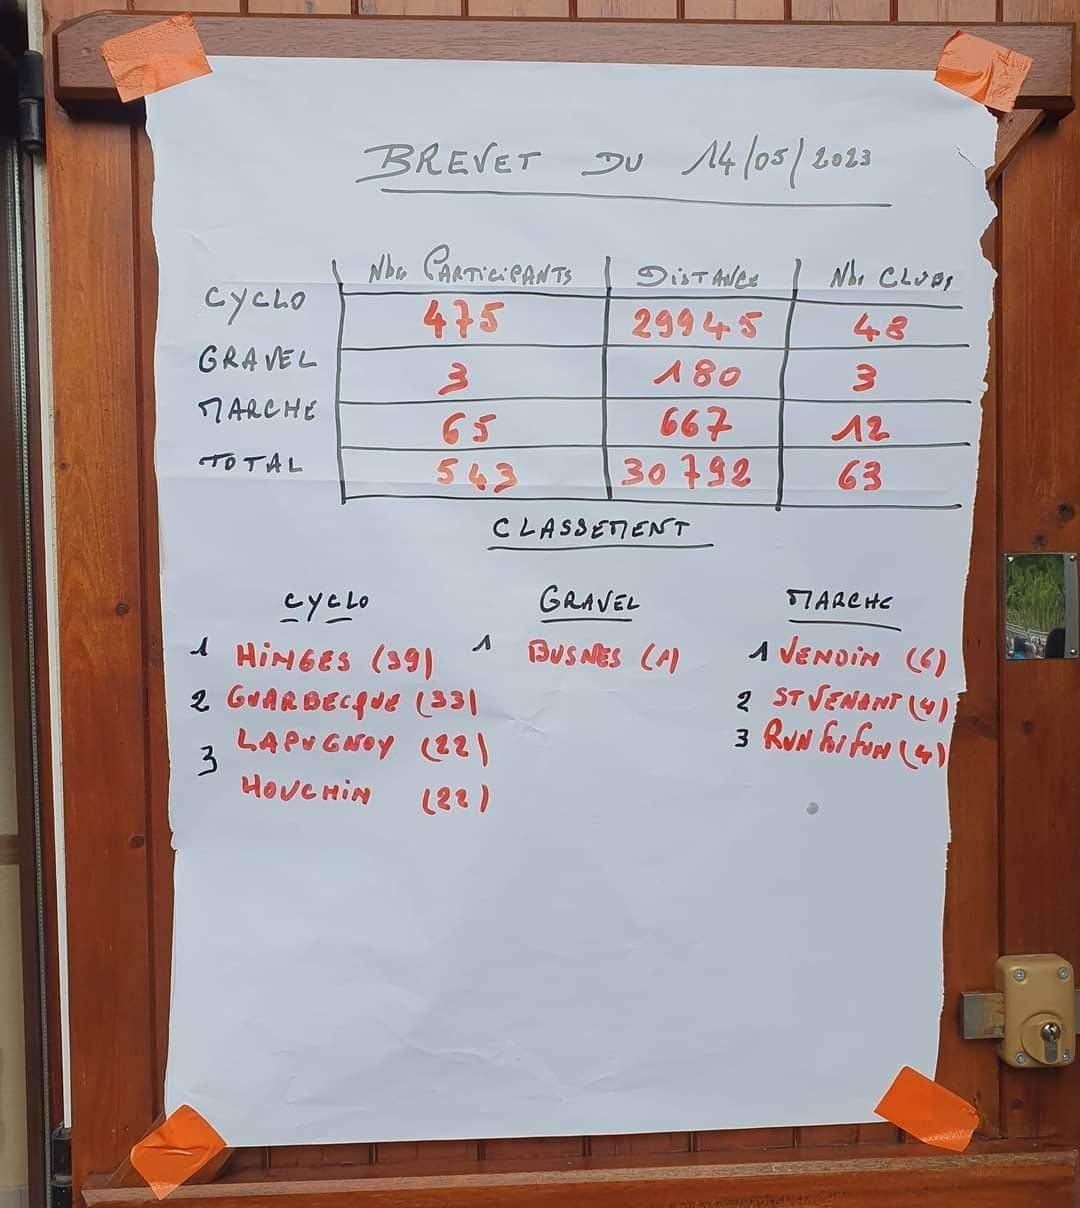 BREVET DU 14/05/2023
Nbre PARTICIPANTS DISTANCE Nbr CLUBS
CYCLO 475 29945 48
GRAVEL 3 180 3
MARCHE 65 667 12
TOTAL 543 30792 63
CLASSEMENT
CYCLO GRAVEL MARCHE
1 HINGES (39) 1 BUSNES (1) 1 VENDIN (6)
2 GUARBECQUE (33) 2 ST VENANT (4)
3 LAPUGNOY (22) 3 RUN for FUN (4)
HOUCHIN (22)